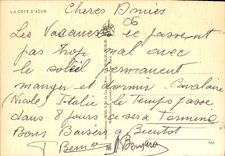 LA COTE D'AZUR
Cheres Amies
Les Vacances se passent
pas trop mal avec
le soleil permanent
manger et dormir. Cavalaire
(Nice) Italie le Temps passe
dans 8 jours ce sera Terminé
Bons Baisers à Bientot